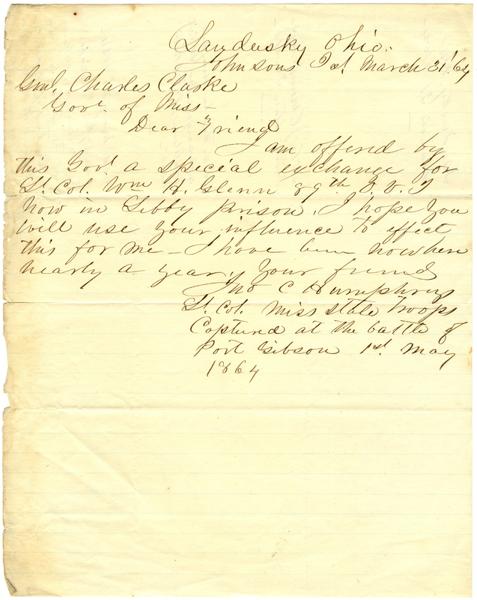 Sandusky Ohio.
Johnsons Isl March 31st/64
Genl. Charles Clarke
Govr. of Miss—
Dear Friend
I am offered by
this Govt. a special exchange for
Lt. Col. Wm H. Glenn 89th O. V. I
now in Libby prison. I hope you
will use your influence to effect
this for me— I have been now here
nearly a year. Your friend
Jno C Humphrey
Lt. Col. Miss State troops
Captured at the battle of
Port Gibson 1st. May
1864